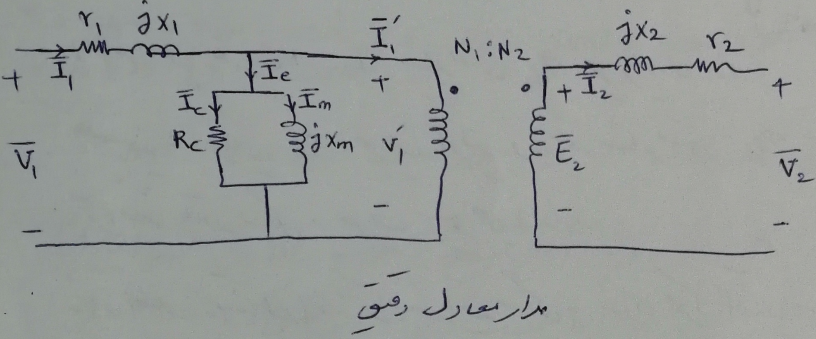 r₁ jx₁ Ī₁′ N₁:N₂ jx₂ r₂
+ Ī₁ Īe + + Ī₂ +
Īc Īm
V̄₁ Rc jxm v₁′ Ē₂ V̄₂
− − − −
مدار معادل دقیق